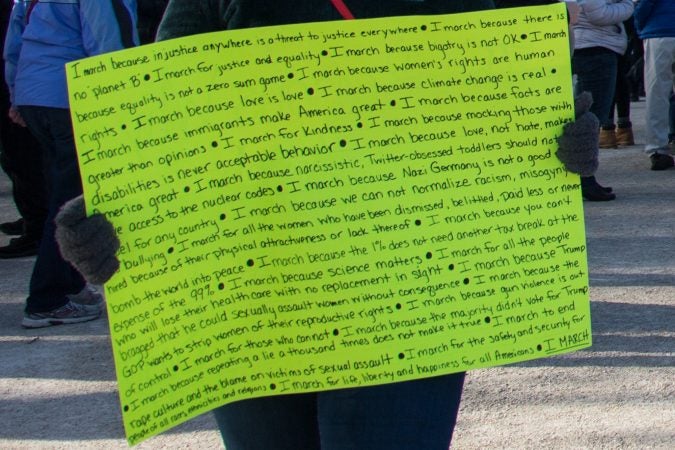 I march because injustice anywhere is a threat to justice everywhere • I march because there is
no planet B • I march for justice and equality • I march because bigotry is not OK • I march
because equality is not a zero sum game • I march because women's rights are human
rights • I march because love is love • I march because climate change is real •
I march because immigrants make America great • I march because facts are
greater than opinions • I march for kindness • I march because mocking those with
disabilities is never acceptable behavior • I march because love, not hate, makes
America great • I march because narcissistic, Twitter-obsessed toddlers should not
access to the nuclear codes • I march because Nazi Germany is not a good
el for any country • I march because we can not normalize racism, misogyny
bullying • I march for all the women who have been dismissed, belittled, paid less or never
hired because of their physical attractiveness or lack thereof • I march because you can't
bomb the world into peace • I march because the 1% does not need another tax break at the
expense of the 99% • I march because science matters • I march for all the people
who will lose their healthcare with no replacement in sight • I march because Trump
bragged that he could sexually assault women without consequence • I march because the
GOP wants to strip women of their reproductive rights • I march because gun violence is out
of control • I march for those who cannot • I march because the majority didn't vote for Trump
• I march because repeating a lie a thousand times does not make it true • I march to end
rape culture and the blame on victims of sexual assault • I march for the safety and security for
people of all races, ethnicities and religions • I march for life, liberty and happiness for all Americans • I MARCH